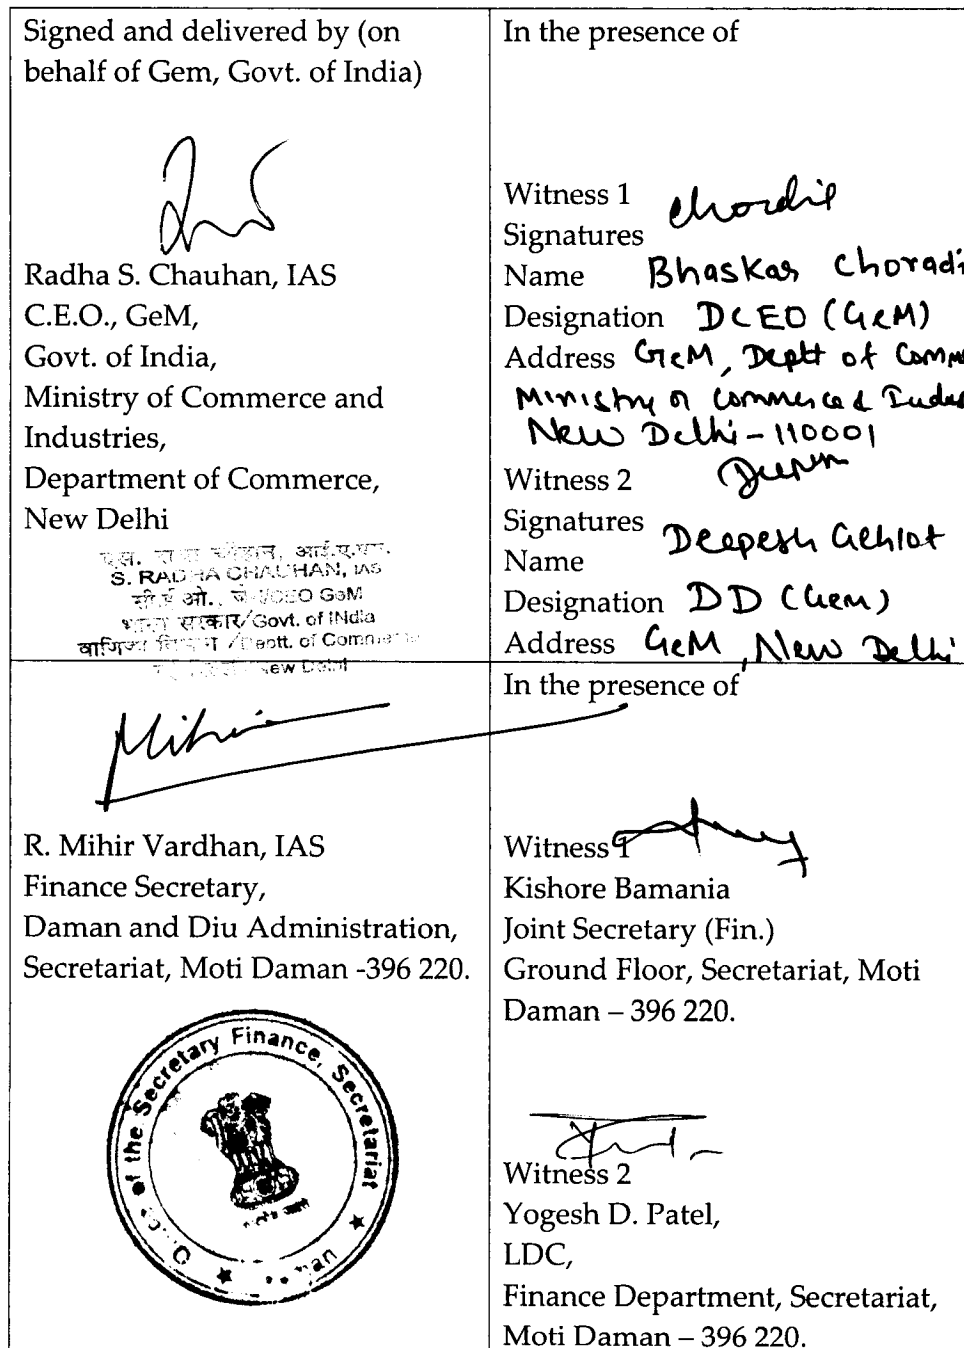 Signed and delivered by (on
behalf of Gem, Govt. of India)
Radha S. Chauhan, IAS
C.E.O., GeM,
Govt. of India,
Ministry of Commerce and
Industries,
Department of Commerce,
New Delhi
S. RADHA CHAUHAN, IAS
CEO GeM
सरकार/Govt. of INdia
वाणिज्य /Deptt. of Commerce
New Delhi
In the presence of
Witness 1
Signatures
Name Bhaskar Choradi
Designation DCEO (GeM)
Address GeM, Deptt of Comm
Ministry of Commerce &
New Delhi - 110001
Witness 2
Signatures
Name Deepesh Gehlot
Designation DD (Gem)
Address GeM, New Delhi
Mihir
R. Mihir Vardhan, IAS
Finance Secretary,
Daman and Diu Administration,
Secretariat, Moti Daman -396 220.
of the Secretary Finance, Secretariat
In the presence of
Witness 1
Kishore Bamania
Joint Secretary (Fin.)
Ground Floor, Secretariat, Moti
Daman – 396 220.
Witness 2
Yogesh D. Patel,
LDC,
Finance Department, Secretariat,
Moti Daman – 396 220.